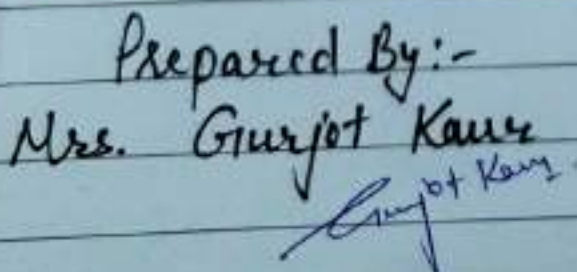 Prepared By:-
Mrs. Gurjot Kaur
Gurjot Kaur